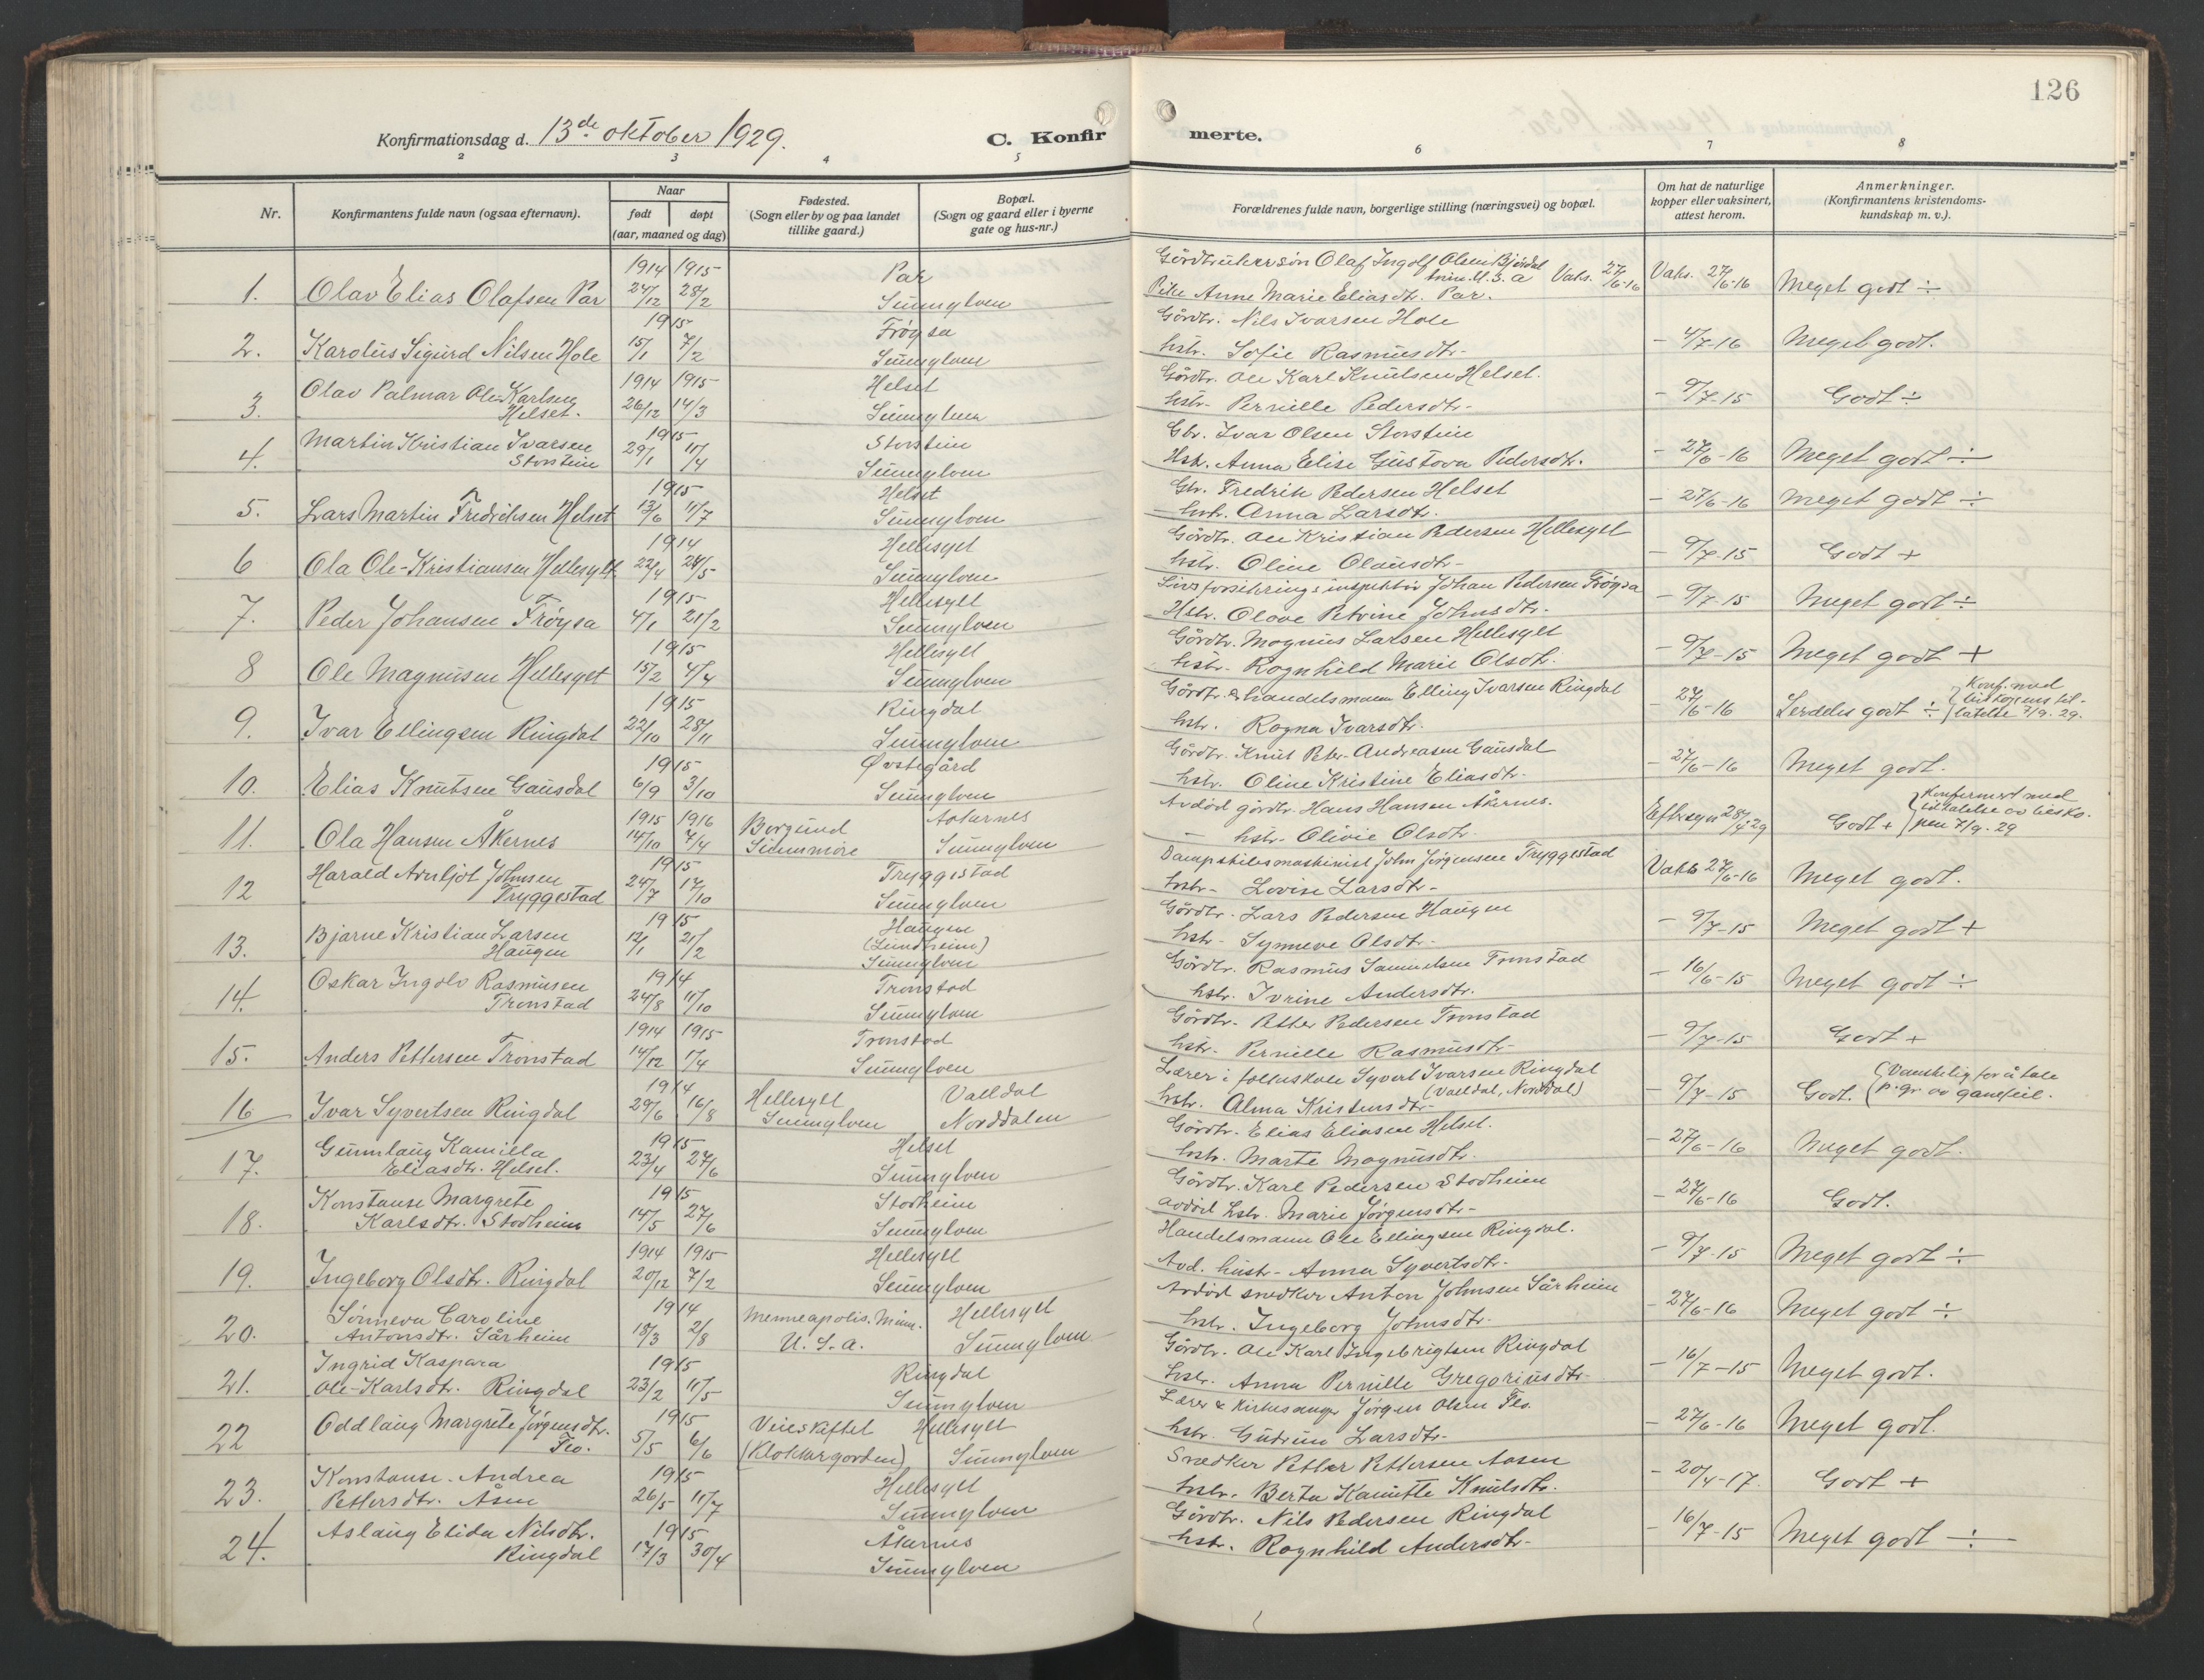 126
Konfirmationsdag d. 13de oktober 1929.
C. Konfirmerte.
2 3 4 5 6 7 8
Nr.
Konfirmantens fulde navn (ogsaa efternavn).
Naar
født døpt
(aar, maaned og dag)
Fødested.
(Sogn eller by og paa landet
tillike gaard.)
Bopæl.
(Sogn og gaard eller i byerne
gate og hus-nr.)
Forældrenes fulde navn, borgerlige stilling (næringsvei) og bopæl.
Om hat de naturlige
kopper eller vaksinert,
attest herom.
Anmerkninger.
(Konfirmantens kristendoms-
kundskap m. v.).
1914 1915 Par Olaf Ingolf Olsen Bjørdal
1. Olav Elias Olafsen Par 24/12 28/2 Sunnylven Pike Anne Marie Eliasdtr. Par. Vaks. 27/6-16 Vaks. 27/6-16 Meget godt ÷
1915 Frøysa Gårdbr. Nils Ivarsen Hole
2. Karolus Sigurd Nilsen Hole 15/1 7/2 Sunnylven hstr. Sofie Rasmusdtr- - 4/7-16 Meget godt.
Olav Palmar Ole-Karlsen 1914 1915 Helset Gårdbr. Ole Karl Knutsen Helset.
3. Helset. 26/12 14/3 Sunnylven hstr. Pernille Pedersdtr- - 9/7-15 Godt ÷
Martin Kristian Ivarsen 1915 Storstein Gbr. Ivar Olsen Storstein
4. Storstein 29/1 11/4 Sunnylven Hstr. Anna Elise Gustova Pedersdtr. - 27/6-16 Meget godt ÷
1915 Helset Gbr. Fredrik Pedersen Helset
5. Lars Martin Fredriksen Helset 13/6 11/7 Sunnylven hstr. Anna Larsdtr. - 27/6-16 Meget godt ÷
1914 Hellesylt Gårdbr. Ole Kristian Pedersen Hellesylt
6 Ola Ole-Kristiansen Hellesylt 22/4 24/5 Sunnylven hstr. Oline Olausdtr- - 9/7-15 Godt +
1915 Hellesylt Livsforsikringsinspektør Johan Pedersen Frøysa
7. Peder Johansen Frøysa 4/1 21/2 Sunnylven Hstr. Olove Petrine Johnsdtr. - 9/7-15 Meget godt ÷
1915 Hellesylt Gårdbr. Magnus Larsen Hellesylt
8 Ole Magnusen Hellesylt 15/2 4/4 Sunnylven hstr. Ragnhild Marie Olsdtr. - 9/7-15 Meget godt +
1915 Ringdal Gårdbr. & handelsmann Elling Ivarsen Ringdal Konf. med
9. Ivar Ellingsen Ringdal 22/10 28/11 Sunnylven hstr. Ragna Ivarsdtr. - 27/6-16 Serdeles godt ÷ biskopens til-
latelse 7/9.29.
1915 Øvstegård Gårdbr. Knut Peter-Andreasen Gausdal
10. Elias Knutsen Gausdal 6/9 3/10 Sunnylven hstr. Oline Kristine Eliasdtr. - 27/6-16 Meget godt.
1915 1916 Borgund Aakernes Avdød gårdbr. Hans Hansen Åkernes. Konfirmert med
11. Ola Hansen Åkernes 14/10 4/4 Sunnmøre Sunnylven — hstr. Olivie Olsdtr. Eftersyn 28/4 29 Godt + tillatelse av bisko-
pen 7/9.29
Harald Arnljot Johnsen 1915 Tryggestad Dampskibsmaskinist John Jørgensen Tryggestad
12 Tryggestad 24/7 17/10 Sunnylven hstr- Lovise Larsdtr- Vaks 27/6-16 Meget godt.
Bjarne Kristian Larsen 1915 Haugen Gårdbr. Lars Pedersen Haugen
13. Haugen 12/1 21/2 (Lundheim) Sunnylven hstr- Synneve Olsdtr- - 9/7-15 Meget godt +
Oskar Ingolv Rasmusen 1914 Tronstad Gårdbr. Rasmus Samuelsen Tronstad
14. Tronstad 24/8 11/10 Sunnylven hstr. Ivrine Andersdtr. - 16/6-15 Meget godt ÷
1914 1915 Tronstad Gårdbr- Petter Pedersen Tronstad
15. Anders Pettersen Tronstad 14/12 1/4 Sunnylven hstr- Pernille Rasmusdtr- - 9/7-15 Godt +
1914 Hellesylt Valldal Lærer i folkeskole Syvert Ivarsen Ringdal Vanskelig for å tale
16 Ivar Syvertsen Ringdal 29/6 16/8 Sunnylven Norddalen hstr. Alma Kristensdtr- (Valldal, Norddal) - 9/7-15 Godt. p. gr. av ganefeil.
Gunnlaug Kamilla 1915 Helset Gårdbr- Elias Eliasen Helset.
17. Eliasdtr. Helset. 23/4 27/6 Sunnylven hstr. Marte Magnusdtr. - 27/6-16 Meget godt.
Konstanse Margrete 1915 Stadheim Gårdbr. Karl Pedersen Stadheim
18. Karlsdtr. Stadheim 14/5 27/6 Sunnylven avdød hstr. Marie Jørgensdtr- - 27/6-16 Godt.
1914 1915 Hellesylt Handelsmann Ole Ellingsen Ringdal.
19. Ingeborg Olsdtr. Ringdal 20/12 7/2 Sunnylven Avd. hustr- Anna Syvertsdtr- - 9/7-15 Meget godt ÷
Sønneva Caroline 1914 Menneapolis. Minn. Hellesylt Avdød snedker Anton Johnsen Sårheim
20. Antonsdtr. Sårheim 18/3 2/8 U.S.a. Sunnylven hstr. Ingeborg Johnsdtr. - 27/6-16 Meget godt ÷
Ingrid Kaspara 1915 Ringdal Gårdbr. Ole Karl Ingebrigtsen Ringdal
21. Ole-Karlsdtr. Ringdal 23/2 11/5 Sunnylven hstr. Anna Pernille Gregoriusdtr- - 16/7-15 Meget godt.
Oddlaug Margrete Jørgensdtr. 1915 Veieskiftet Hellesylt Lærer & kirkesanger Jørgen Olsen Flo.
22 Flo. 5/5 6/6 (Klokkergarden) Sunnylven hstr. Gudrun Larsdtr- - 27/6-16 Meget godt.
Konstanse Andrea 1915 Hellesylt Snedker Petter Pettersen Aasen
23. Pettersdtr. Åsen 26/5 11/7 Sunnylven hstr. Berta Knutsdtr. - 20/4-17 Godt +
Aslaug Elida Nilsdtr. 1915 Åkernes Gårdbr. Nils Pedersen Ringdal
24. Ringdal 17/3 30/4 Sunnylven hstr. Ragnhild Andersdtr- - 16/7-15 Meget godt ÷